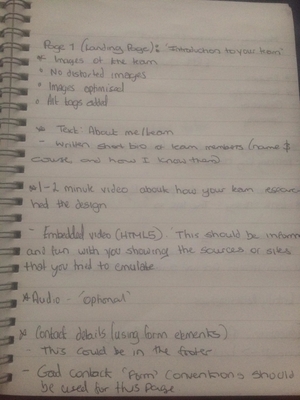 Page 1 (Landing Page): 'Introduction to your team'
* Images of the team
• No distorted images
• Images optimised
• Alt tags added
* Text: About me/team
- Written short bio of team members (name &
course, and how I know them)
* 1-2 minute video about how your team resear
hed the design
- Embedded video (HTML5). This should be inform
and fun with you showing the sources or sites
that you tried to emulate
* Audio - 'optional'
* Contact details (using form elements)
- This could be in the footer
- Good contact 'Form' conventions should
be used for this page